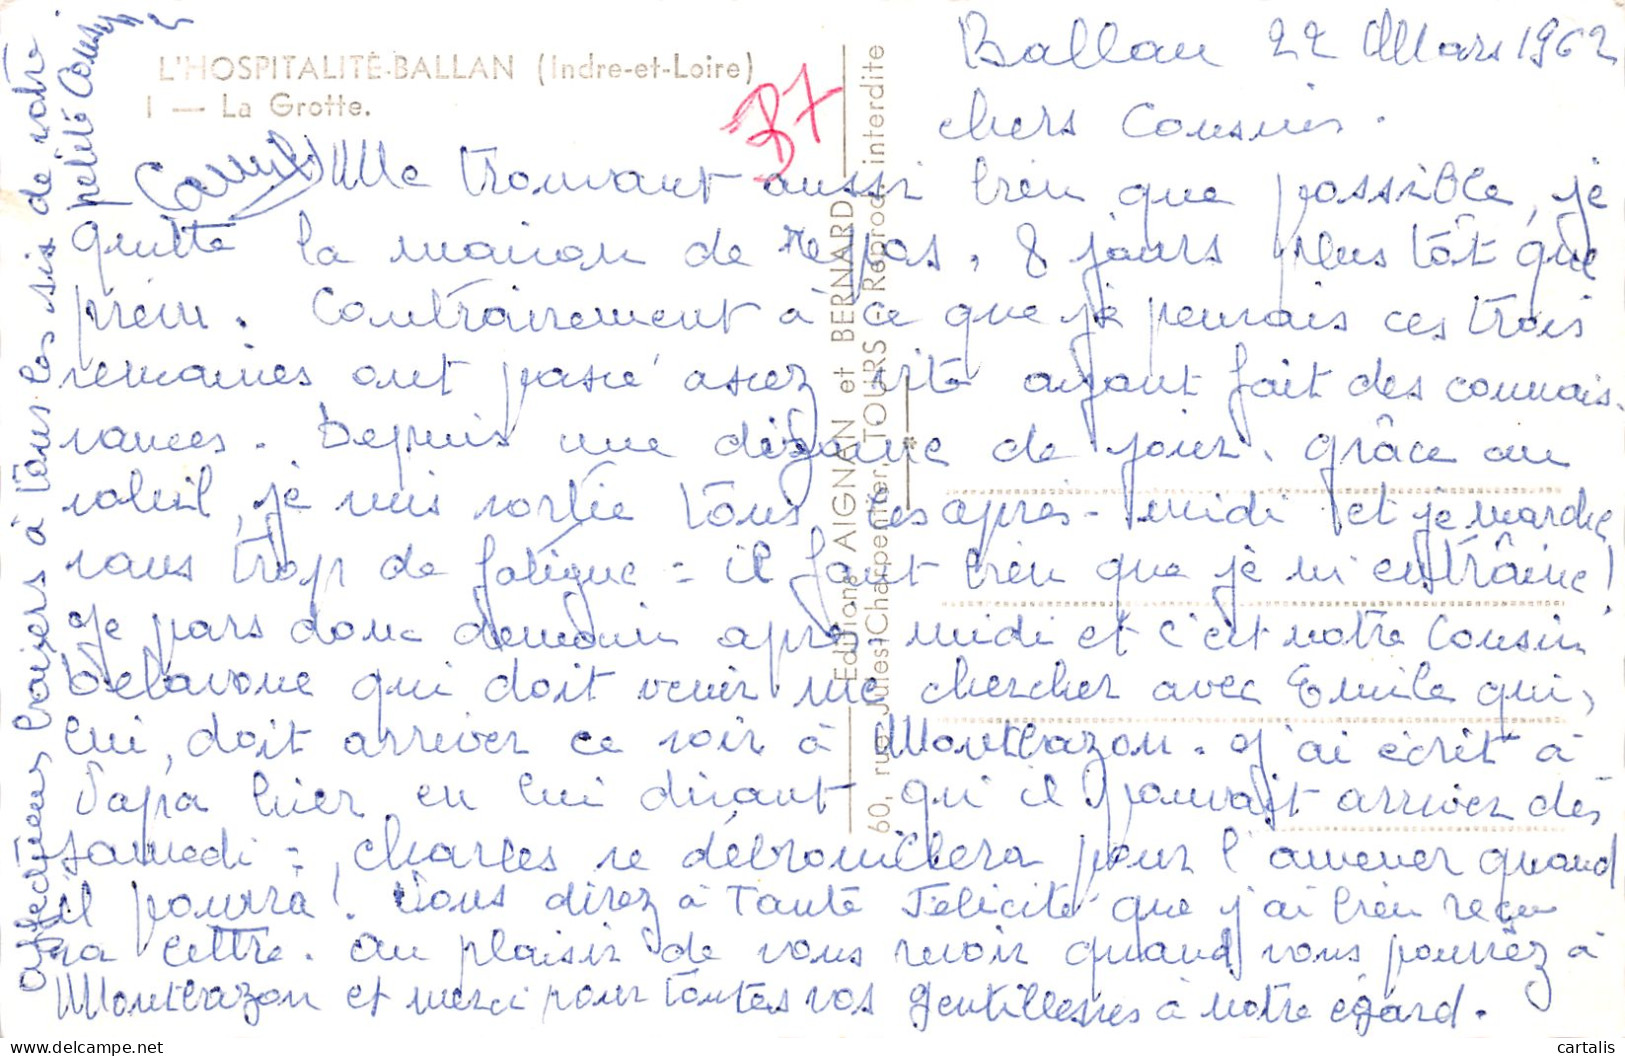 L'HOSPITALITÉ-BALLAN (Indre-et-Loire)
1 — La Grotte.
37
Editions AIGNAN et BERNARD
60, rue Jules-Charpentier, TOURS - Reprod. interdite
Ballan 22 Mars 1962
Chers Cousins.
Me trouvant aussi bien que possible, je
quitte la maison de repos, 8 jours plus tôt que
prévu. Contrairement à ce que je pensais ces trois
semaines ont passé assez vite ayant fait des connais-
sances. Depuis une dizaine de jours, grâce au
soleil, je suis sortie tous les après-midi et je marche
sans trop de fatigue = il faut bien que je m'entraîne!
Je pars donc demain après-midi et c'est notre Cousin
qui doit venir me chercher avec Emile qui,
lui, doit arriver ce soir à Montbazon. J'ai écrit à
Papa hier en lui disant qu'il pouvait arriver dès
samedi = Charles se débrouillera pour l'amener quand
il pourra! Vous direz à Tante Félicité que j'ai bien reçu
sa lettre. Au plaisir de vous revoir quand vous pourrez à
Montbazon et merci pour toutes vos gentillesses à notre égard.
Affectueux baisers à tous les six de votre
petite Cousine
cartalis
delcampe.net